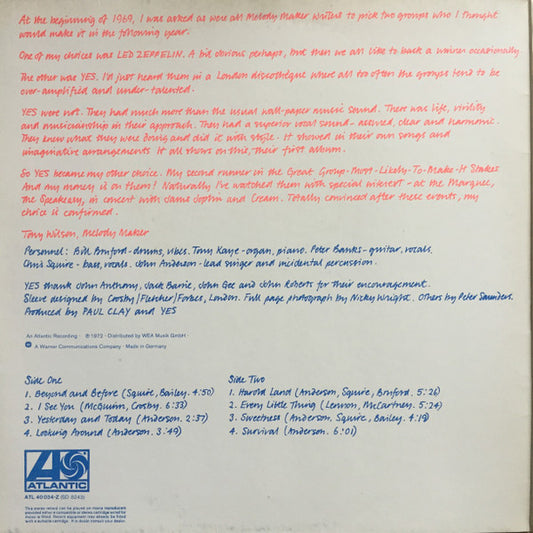 At the beginning of 1969, I was asked as were all Melody Maker writers to pick two groups who I thought
would make it in the following year.
One of my choices was LED ZEPPELIN. A bit obvious perhaps, but then we all like to back a winner occasionally.
The other was YES. I'd just heard them in a London discotheque where all too often the groups tend to be
over-amplified and under-talented.
YES were not. They had much more than the usual wall-paper music sound. There was life, virility
and musicianship in their approach. They had a superior vocal sound - attired, clear and harmonic.
They knew what they were doing and did it with style. It showed in their own songs and
imaginative arrangements It all shows on this, their first album.
So YES became my other choice. My second runner in the Great Group-Most-Likely-To-Make-It Stakes
And my money is on them! Naturally I've watched them with special interest - at the Marquee,
the Speakeasy, in concert with Janis Joplin and Cream. Totally convinced after these events, my
choice is confirmed.
Tony Wilson, Melody Maker
Personnel: Bill Bruford - drums, vibes. Tony Kaye - organ, piano. Peter Banks - guitar, vocals.
Chris Squire - bass, vocals. John Anderson - lead singer and incidental percussion.
YES thank John Anthony, Jack Barrie, John Gee and John Roberts for their encouragement.
Sleeve designed by Crosby/Fletcher/Forbes, London. Full page photograph by Nicky Wright. Others by Peter Saunders.
Produced by PAUL CLAY and YES
An Atlantic Recording · ℗ 1972 · Distributed by WEA Musik GmbH ·
A Warner Communications Company · Made in Germany
Side One
1. Beyond and Before (Squire, Bailey. 4:50)
2. I See You (McGuinn, Crosby. 6:33)
3. Yesterday and Today (Anderson. 2:37)
4. Looking Around (Anderson. 3:49)
Side Two
1. Harold Land (Anderson, Squire, Bruford. 5:26)
2. Every Little Thing (Lennon, McCartney. 5:24)
3. Sweetness (Anderson, Squire, Bailey. 4:19)
4. Survival (Anderson. 6:01)
ATLANTIC
ATL 40 034-Z (SD 8243)
This stereo record can be played on mono reproducers
provided either a compatible or stereo cartridge suited for
mono is fitted. Recent equipment may already be fitted
with a suitable cartridge. If in doubt consult your dealer.